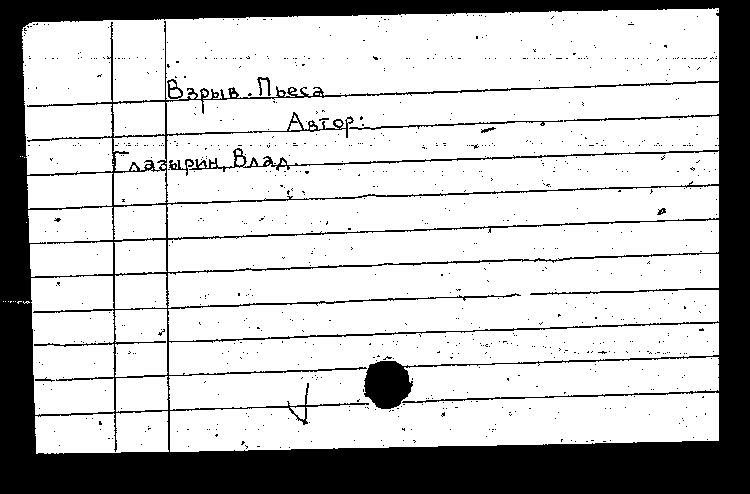 Взрыв. Пьеса
Автор:
Глазырин, Влад.